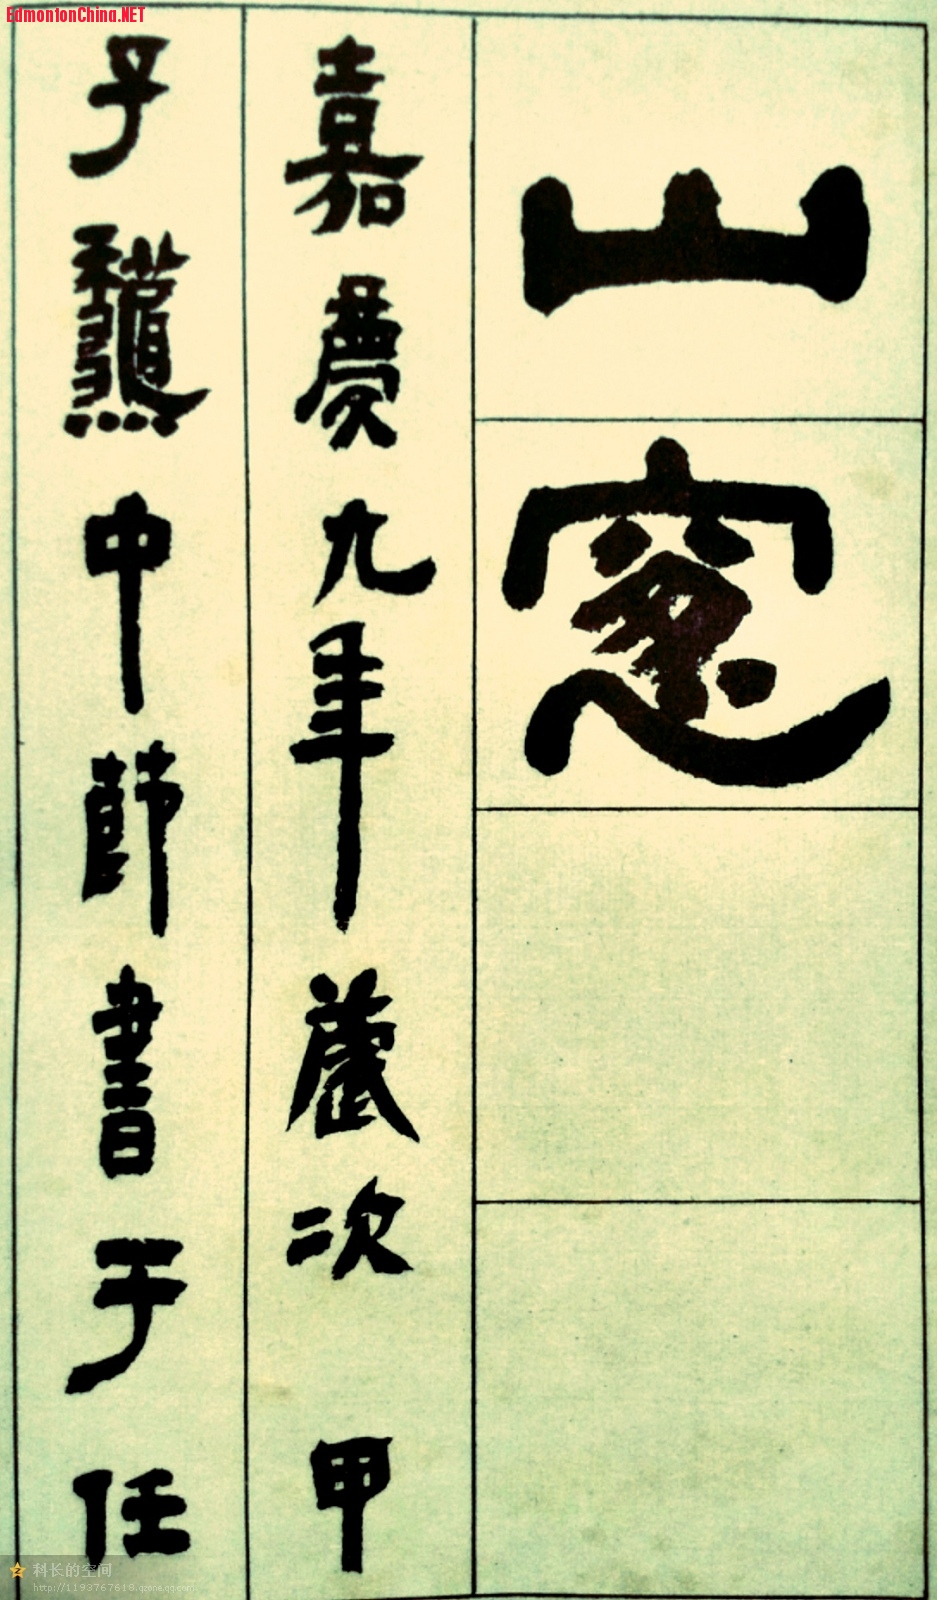 EdmontonChina.NET
山窻
嘉慶九年歲次甲
子龝中節書于任
科长的空间
http://1193767618.qzone.qq.com/